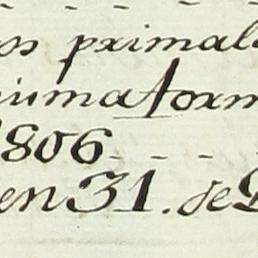 os primala
iuma form
1806
en 31. de D